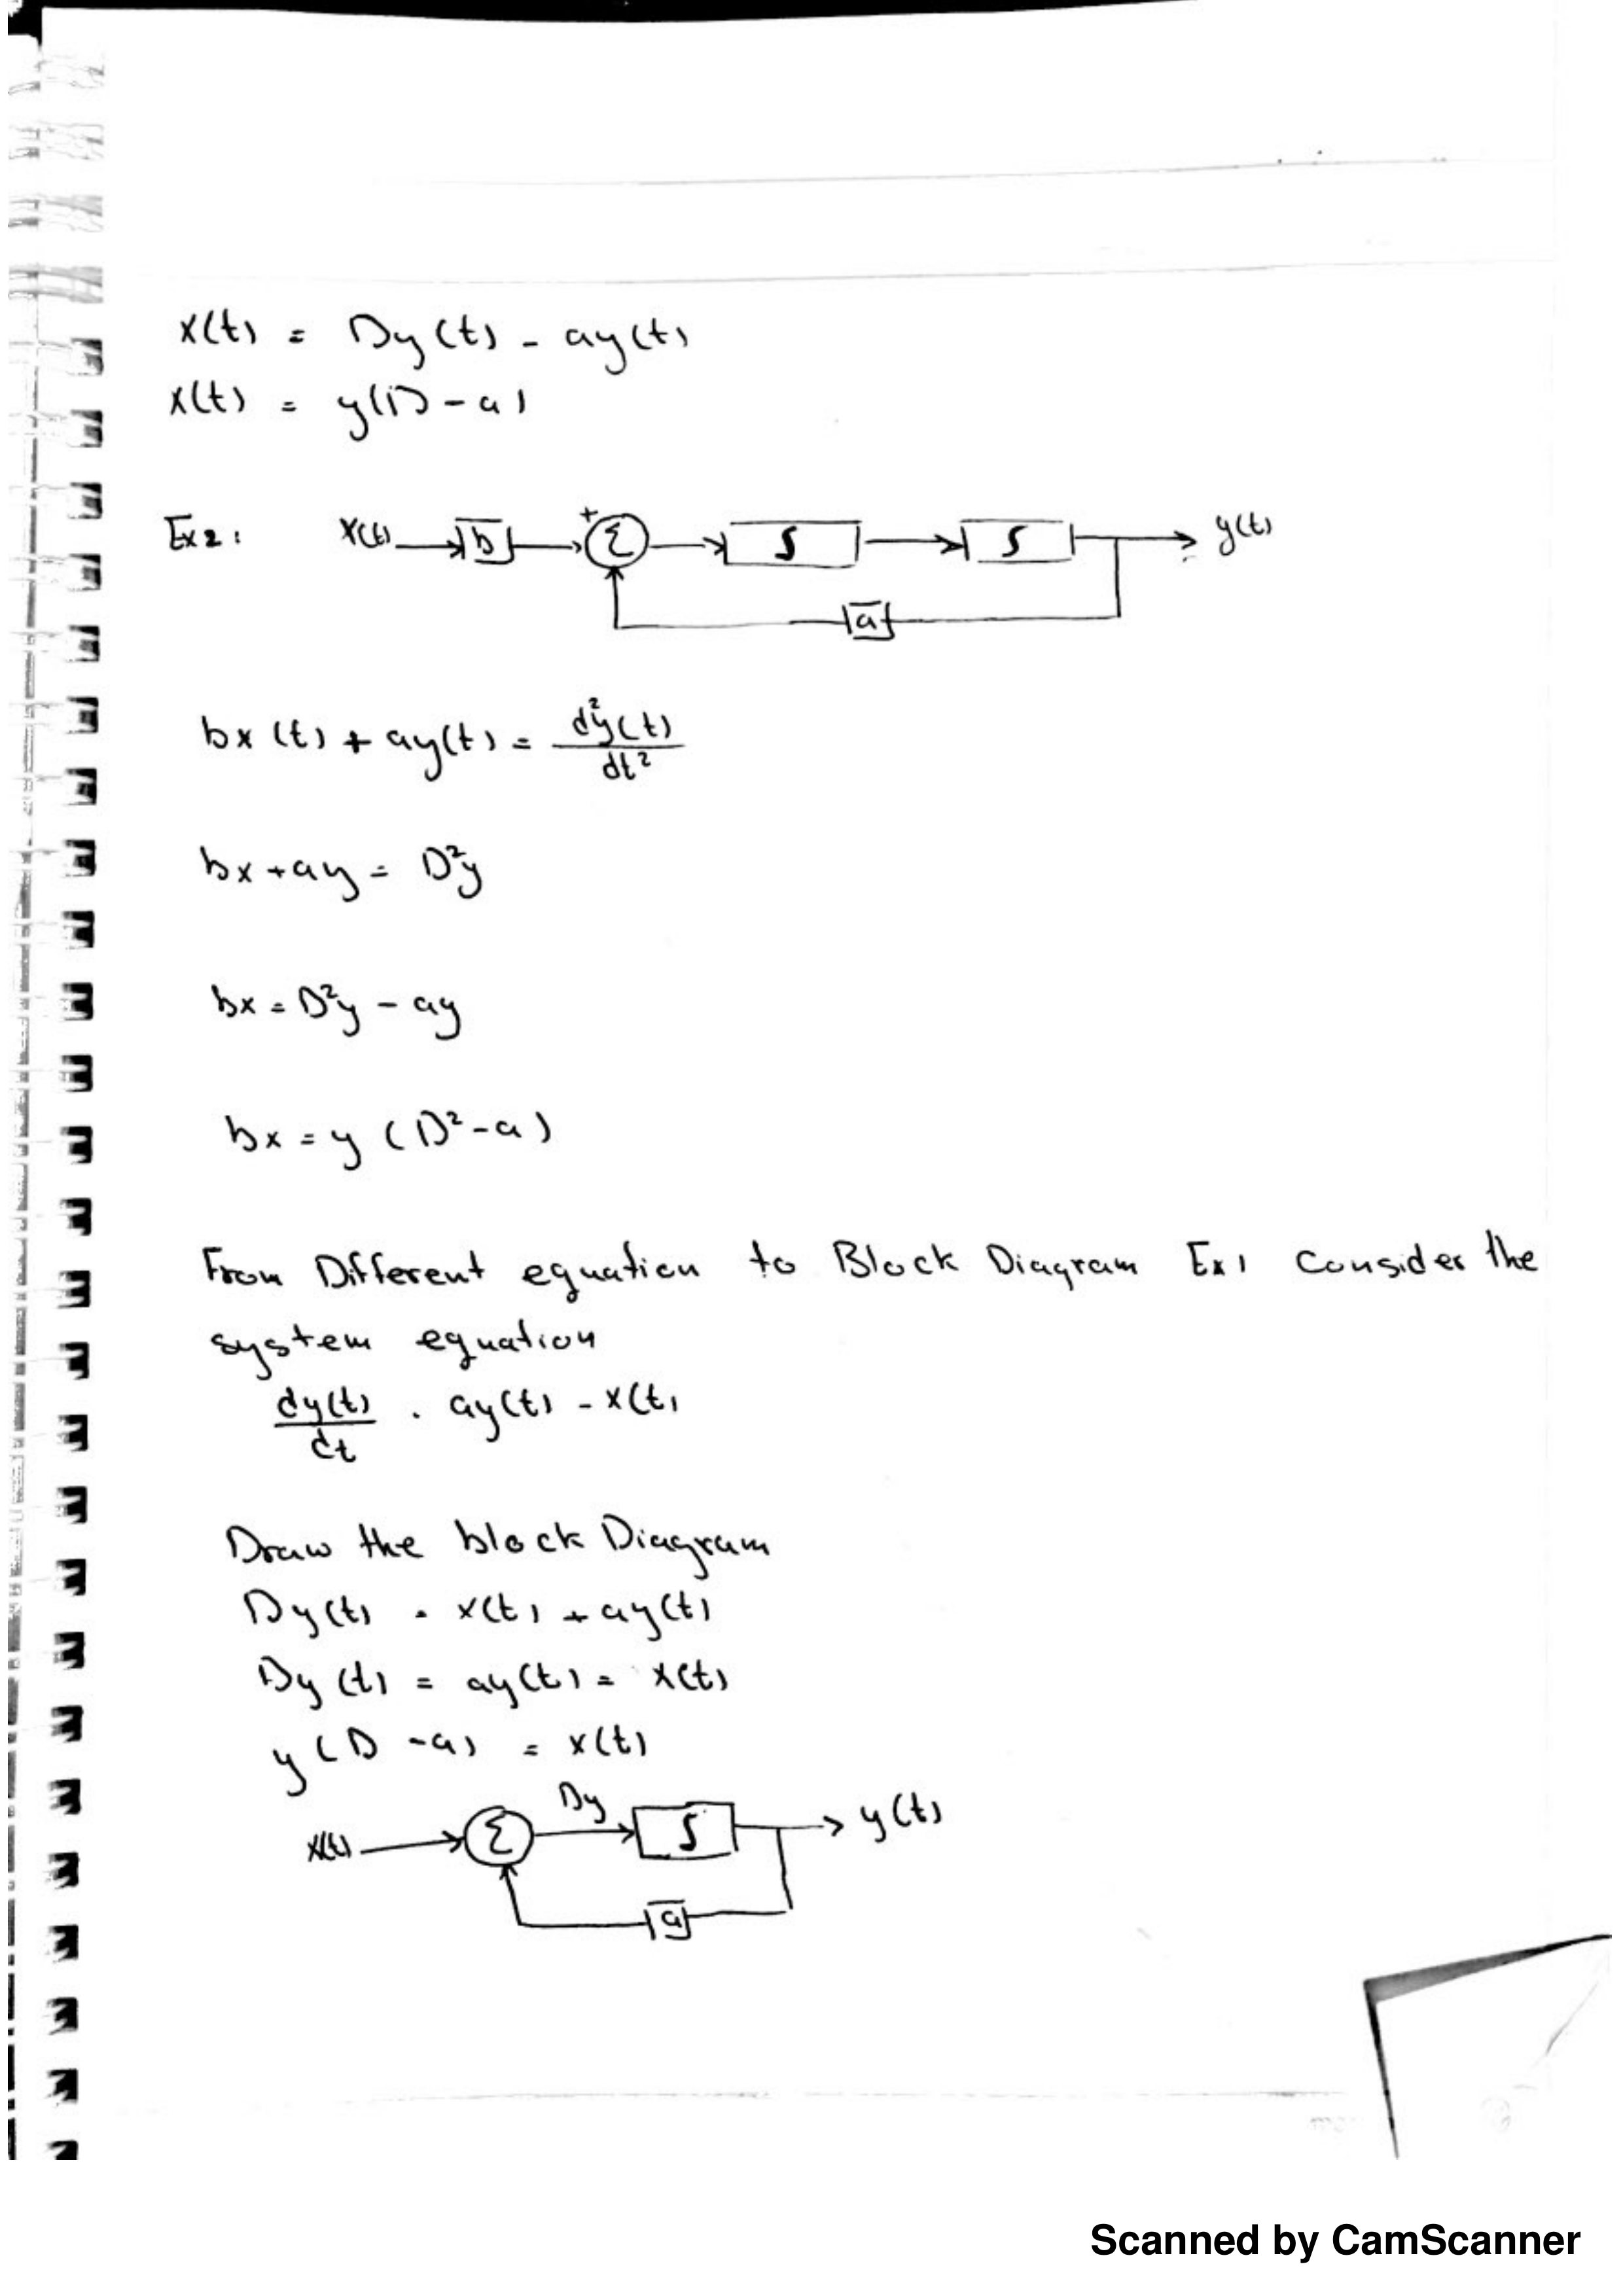 x(t) = Dy(t) - ay(t)
x(t) = y(D - a)
Ex2: x(t) b + Σ ∫ ∫ y(t)
a
bx(t) + ay(t) = d²y(t)/dt²
bx + ay = D²y
bx = D²y - ay
bx = y (D² - a)
From Different equation to Block Diagram Ex1 Consider the
system equation
dy(t)/dt . ay(t) - x(t)
Draw the block Diagram
Dy(t) . x(t) + ay(t)
Dy(t) = ay(t) = x(t)
y(D - a) = x(t)
x(t) Σ Dy ∫ y(t)
a
Scanned by CamScanner